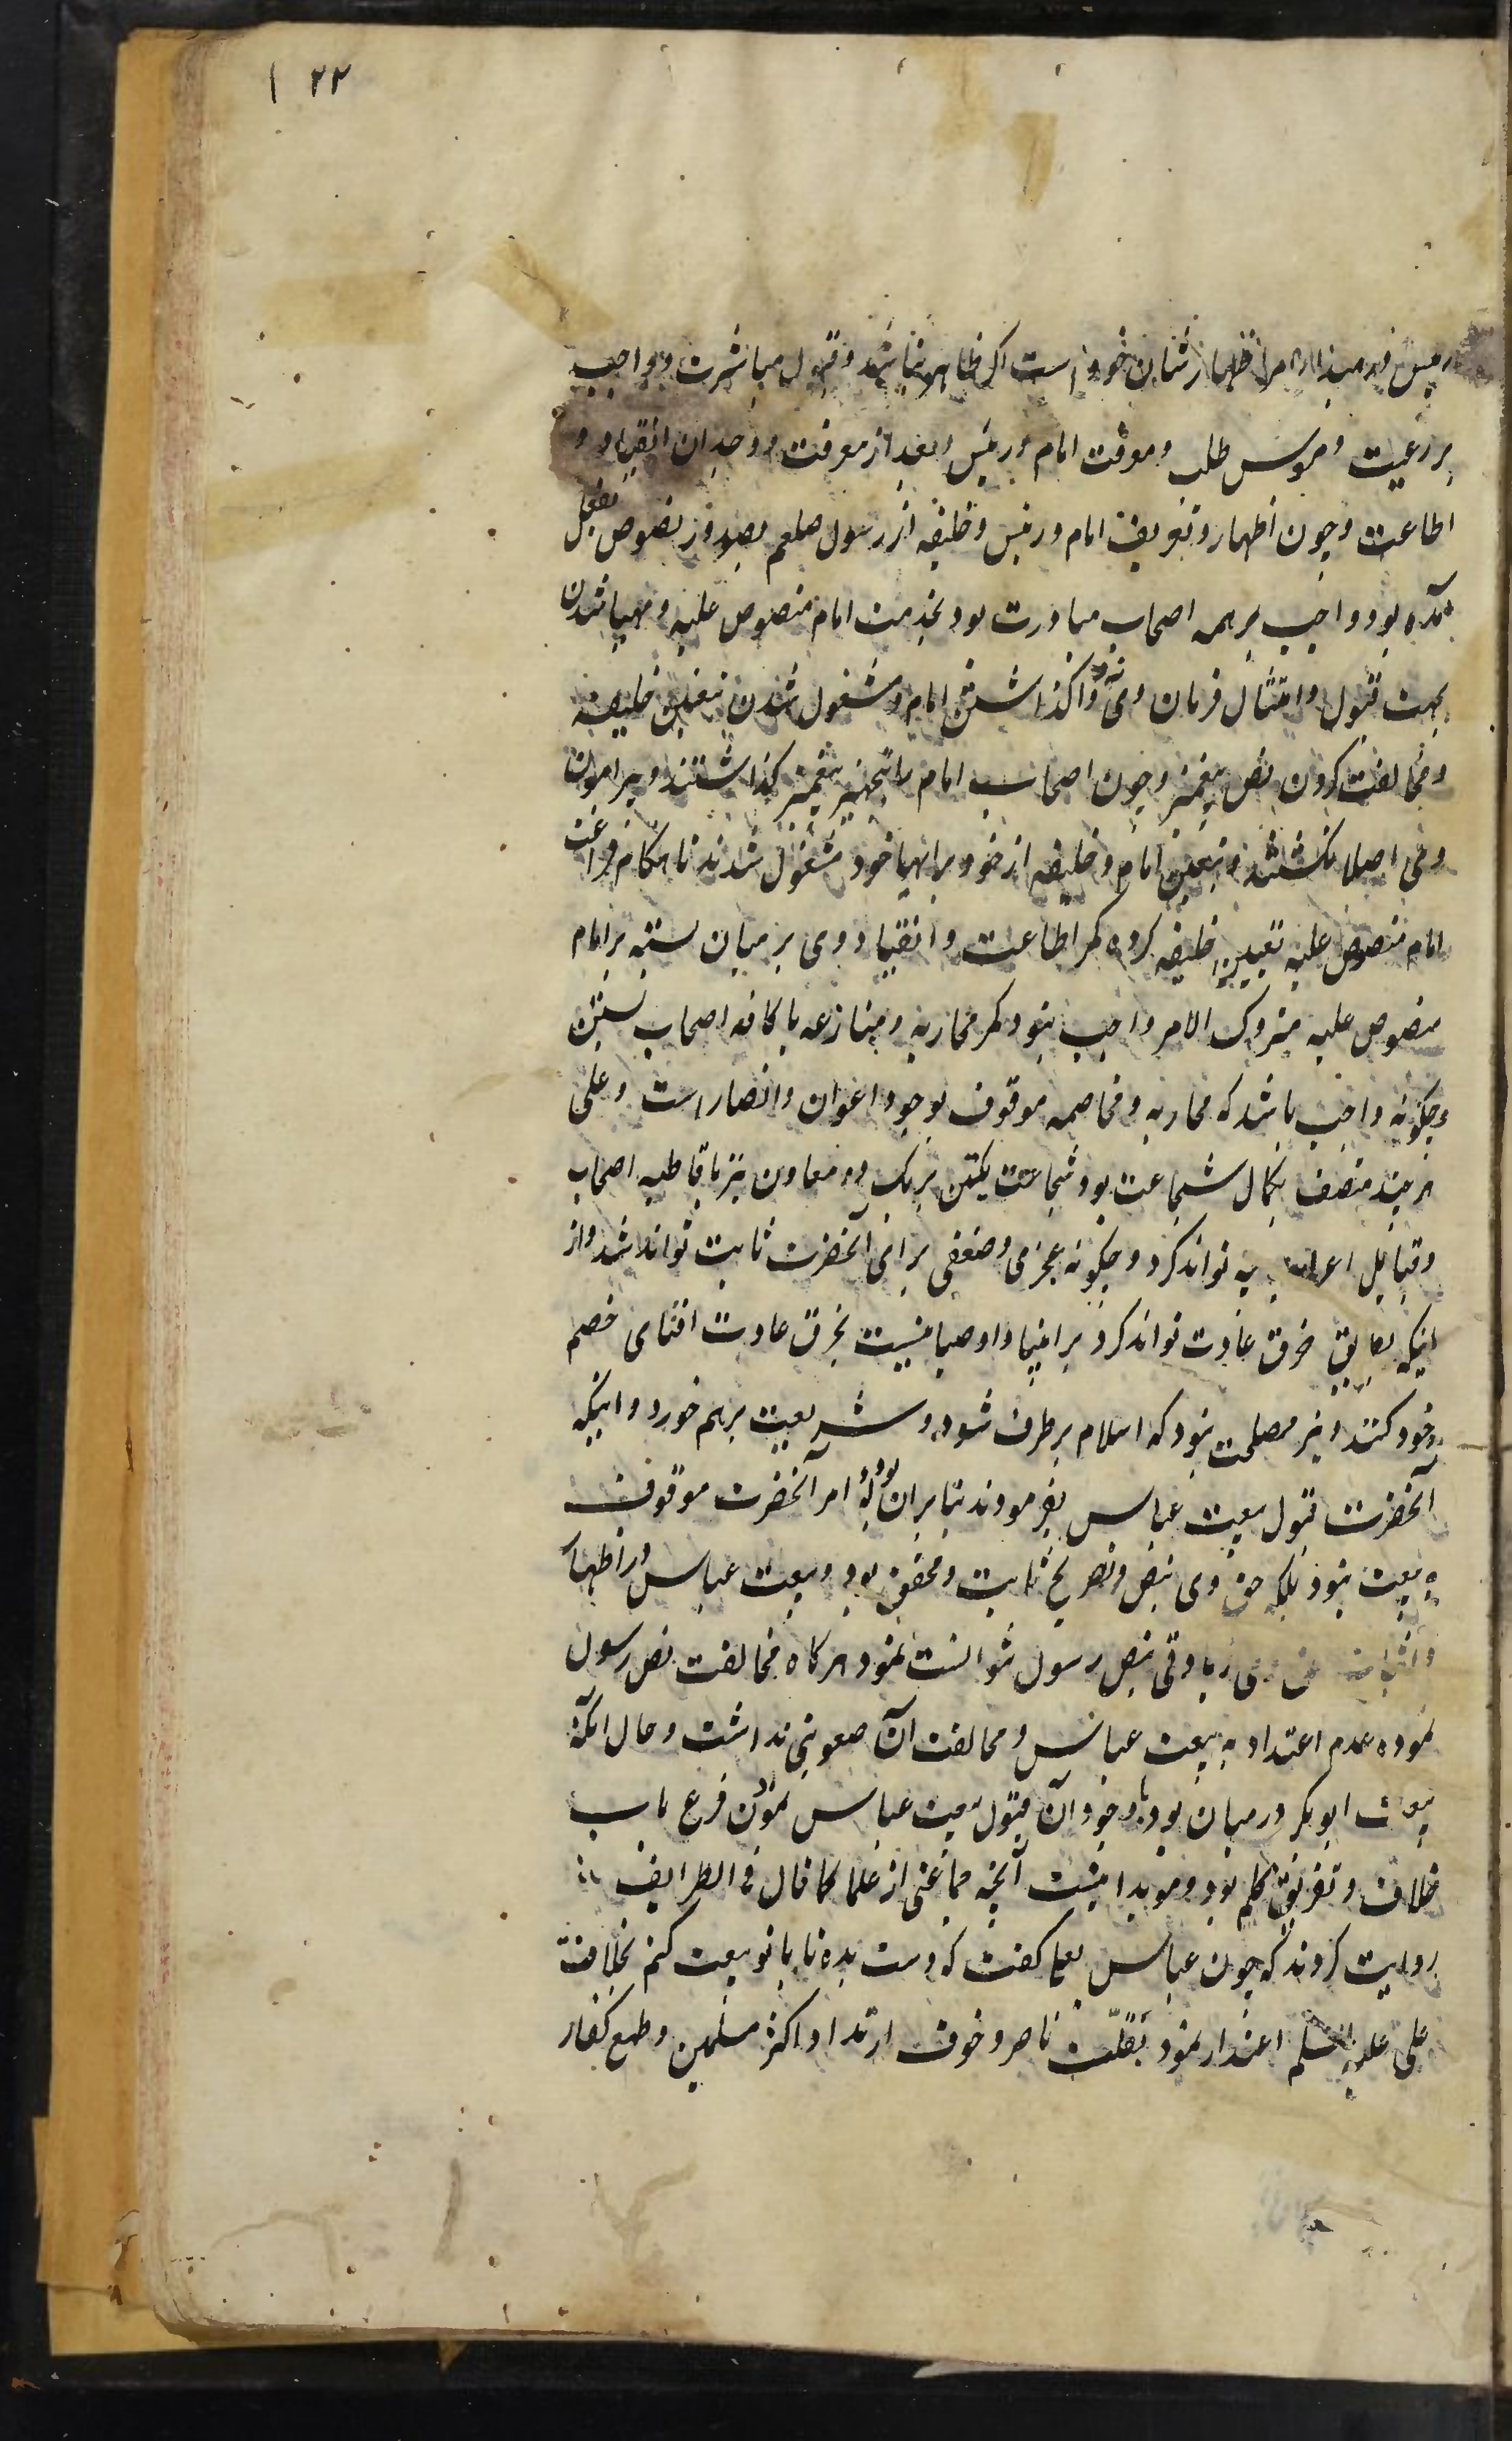 ۱۲۲
رئیس اظهار شان خود است اگر ظاهر نباشد و قبول مباشرت و واجب
بر رعیت و مرؤس طلب و معرفت امام و رئیس و بعد از معرفت و وجدان انقیاد و
اطاعت و چون اظهار و تعریف امام و رئیس و خلیفه از رسول صلعم بصدور نصوص بفعل
آمده بود واجب بر همه اصحاب مبادرت بود بخدمت امام منصوص علیه و مهیا شدن
بجهت قبول و امتثال فرمان وی نه واگذاشتن امام و مشغول شدن بتعیین خلیفه
و مخالفت کردن نص پیغمبر و چون اصحاب امام را بتجهیز پیغمبر گذاشتند و پیرامون
وی اصلا نگشتند و بتعیین امام و خلیفه از خود برایهای خود مشغول شدند تا هنگام فراغت
امام منصوص علیه تعیین خلیفه کرده کمر اطاعت و انقیاد وی بر میان بسته بر امام
منصوص علیه متروک الامر واجب نبود کمر محاربه و منازعه با کافه اصحاب بستن
و چگونه واجب باشد که محاربه و مخاصمه موقوف بوجود اعوان و انصار است و علی
هر چند متصف بکمال شجاعت بود شجاعت یکتن بر یک دو معاون نیز با قاطبه اصحاب
و قبایل اعراب چه تواند کرد و چگونه عجزی و ضعفی برای آنحضرت ثابت تواند شد و از
اینکه بطریق خرق عادت تواند کرد بر انبیا و اوصیا نیست بخرق عادت افنای خصم
خود کنند و نیز مصلحت نبود که اسلام بر طرف شود و شریعت برهم خورد و اینکه
آنحضرت قبول بیعت عباس نفرمودند بنابر آن بود که امر آنحضرت موقوف
به بیعت نبود بلکه حق وی بنص و تصریح ثابت و محقق بود و بیعت عباس در اظهار
و اثبات حق وی زیادتی بنص رسول نتوانست نمود هر گاه مخالفت نص رسول
نموده عدم اعتداد به بیعت عباس و مخالفت آن صعوبتی نداشت و حال آنکه
بیعت ابوبکر در میان بود با وجود آن قبول بیعت عباس نمودن فرع باب
خلاف و تفریق کلم بود و مؤید اینست آنچه جماعتی از علما کما قال فی الطرایف
روایت کردند که چون عباس بعلی گفت که دست بده تا با تو بیعت کنم بخلافت
علی علیه السلم اعتذار نمود بقلّت ناصر و خوف ارتداد اکثر مسلمین و طمع کفار